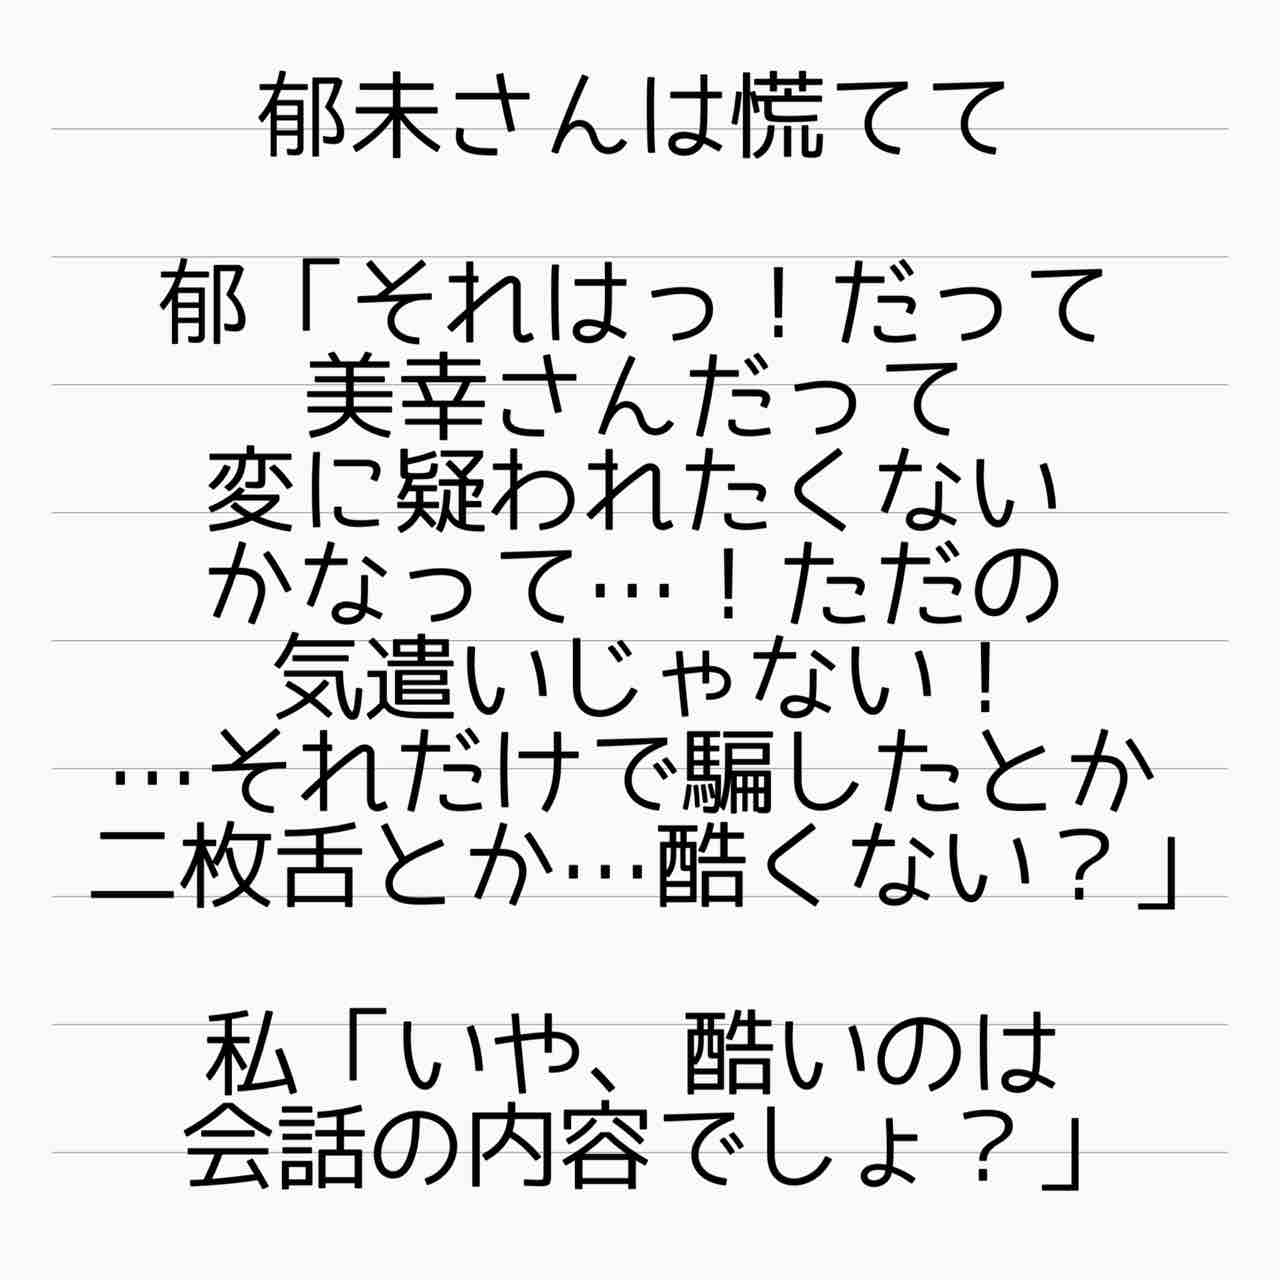 郁未さんは慌てて
郁「それはっ！だって
美幸さんだって
変に疑われたくない
かなって…！ただの
気遣いじゃない！
…それだけで騙したとか
二枚舌とか…酷くない？」
私「いや、酷いのは
会話の内容でしょ？」